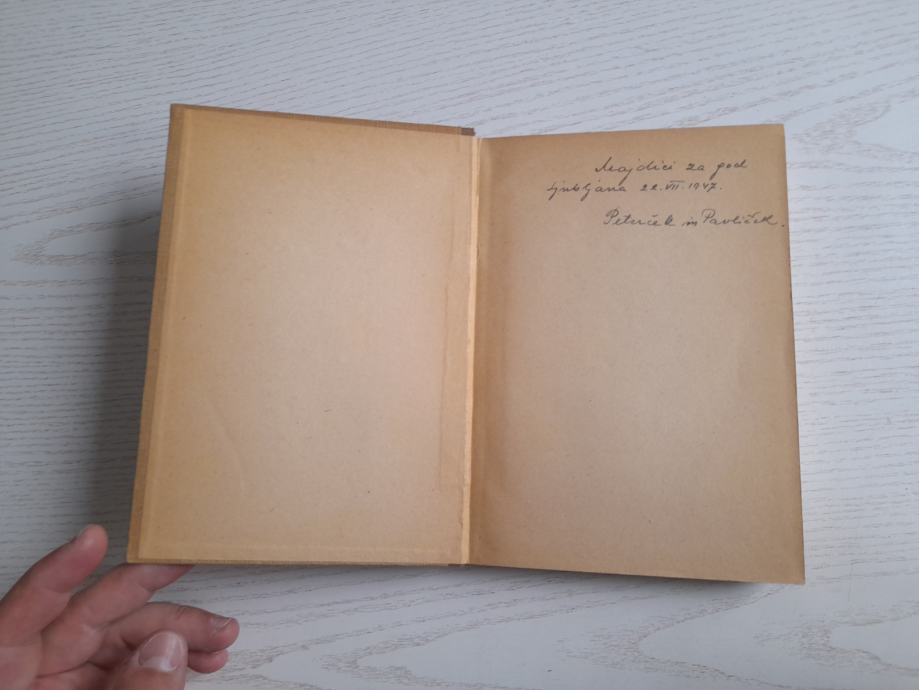 Majdici za god
Ljubljana 22. VII. 1947.
Peterček in Pavliček.